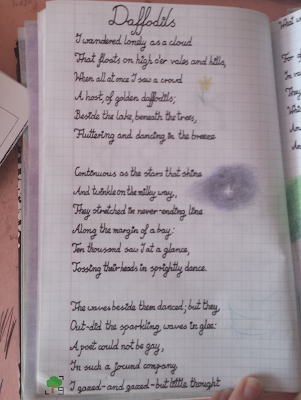 Daffodils
I wandered lonely as a cloud
That floats on high o'er vales and hills,
When all at once I saw a crowd
A host, of golden daffodils;
Beside the lake, beneath the trees,
Fluttering and dancing in the breeze
Continuous as the stars that shine
And twinkle on the milky way,
They stretched in never-ending line
Along the margin of a bay:
Ten thousand saw I at a glance,
Tossing their heads in sprightly dance.
The waves beside them danced; but they,
Out-did the sparkling waves in glee:
A poet could not be gay,
In such a jocund company
I gazed-and gazed-but little thought